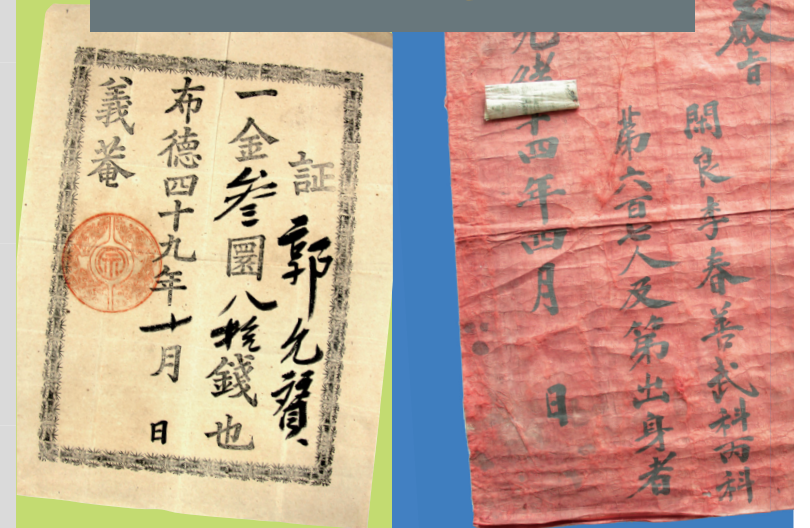 証 郭允
一金叄圜八拾錢也
布德四十九年十月 日
義菴
敎旨
閑良李春善武科丙科
第六百七人及第出身者
光緖十四年四月 日